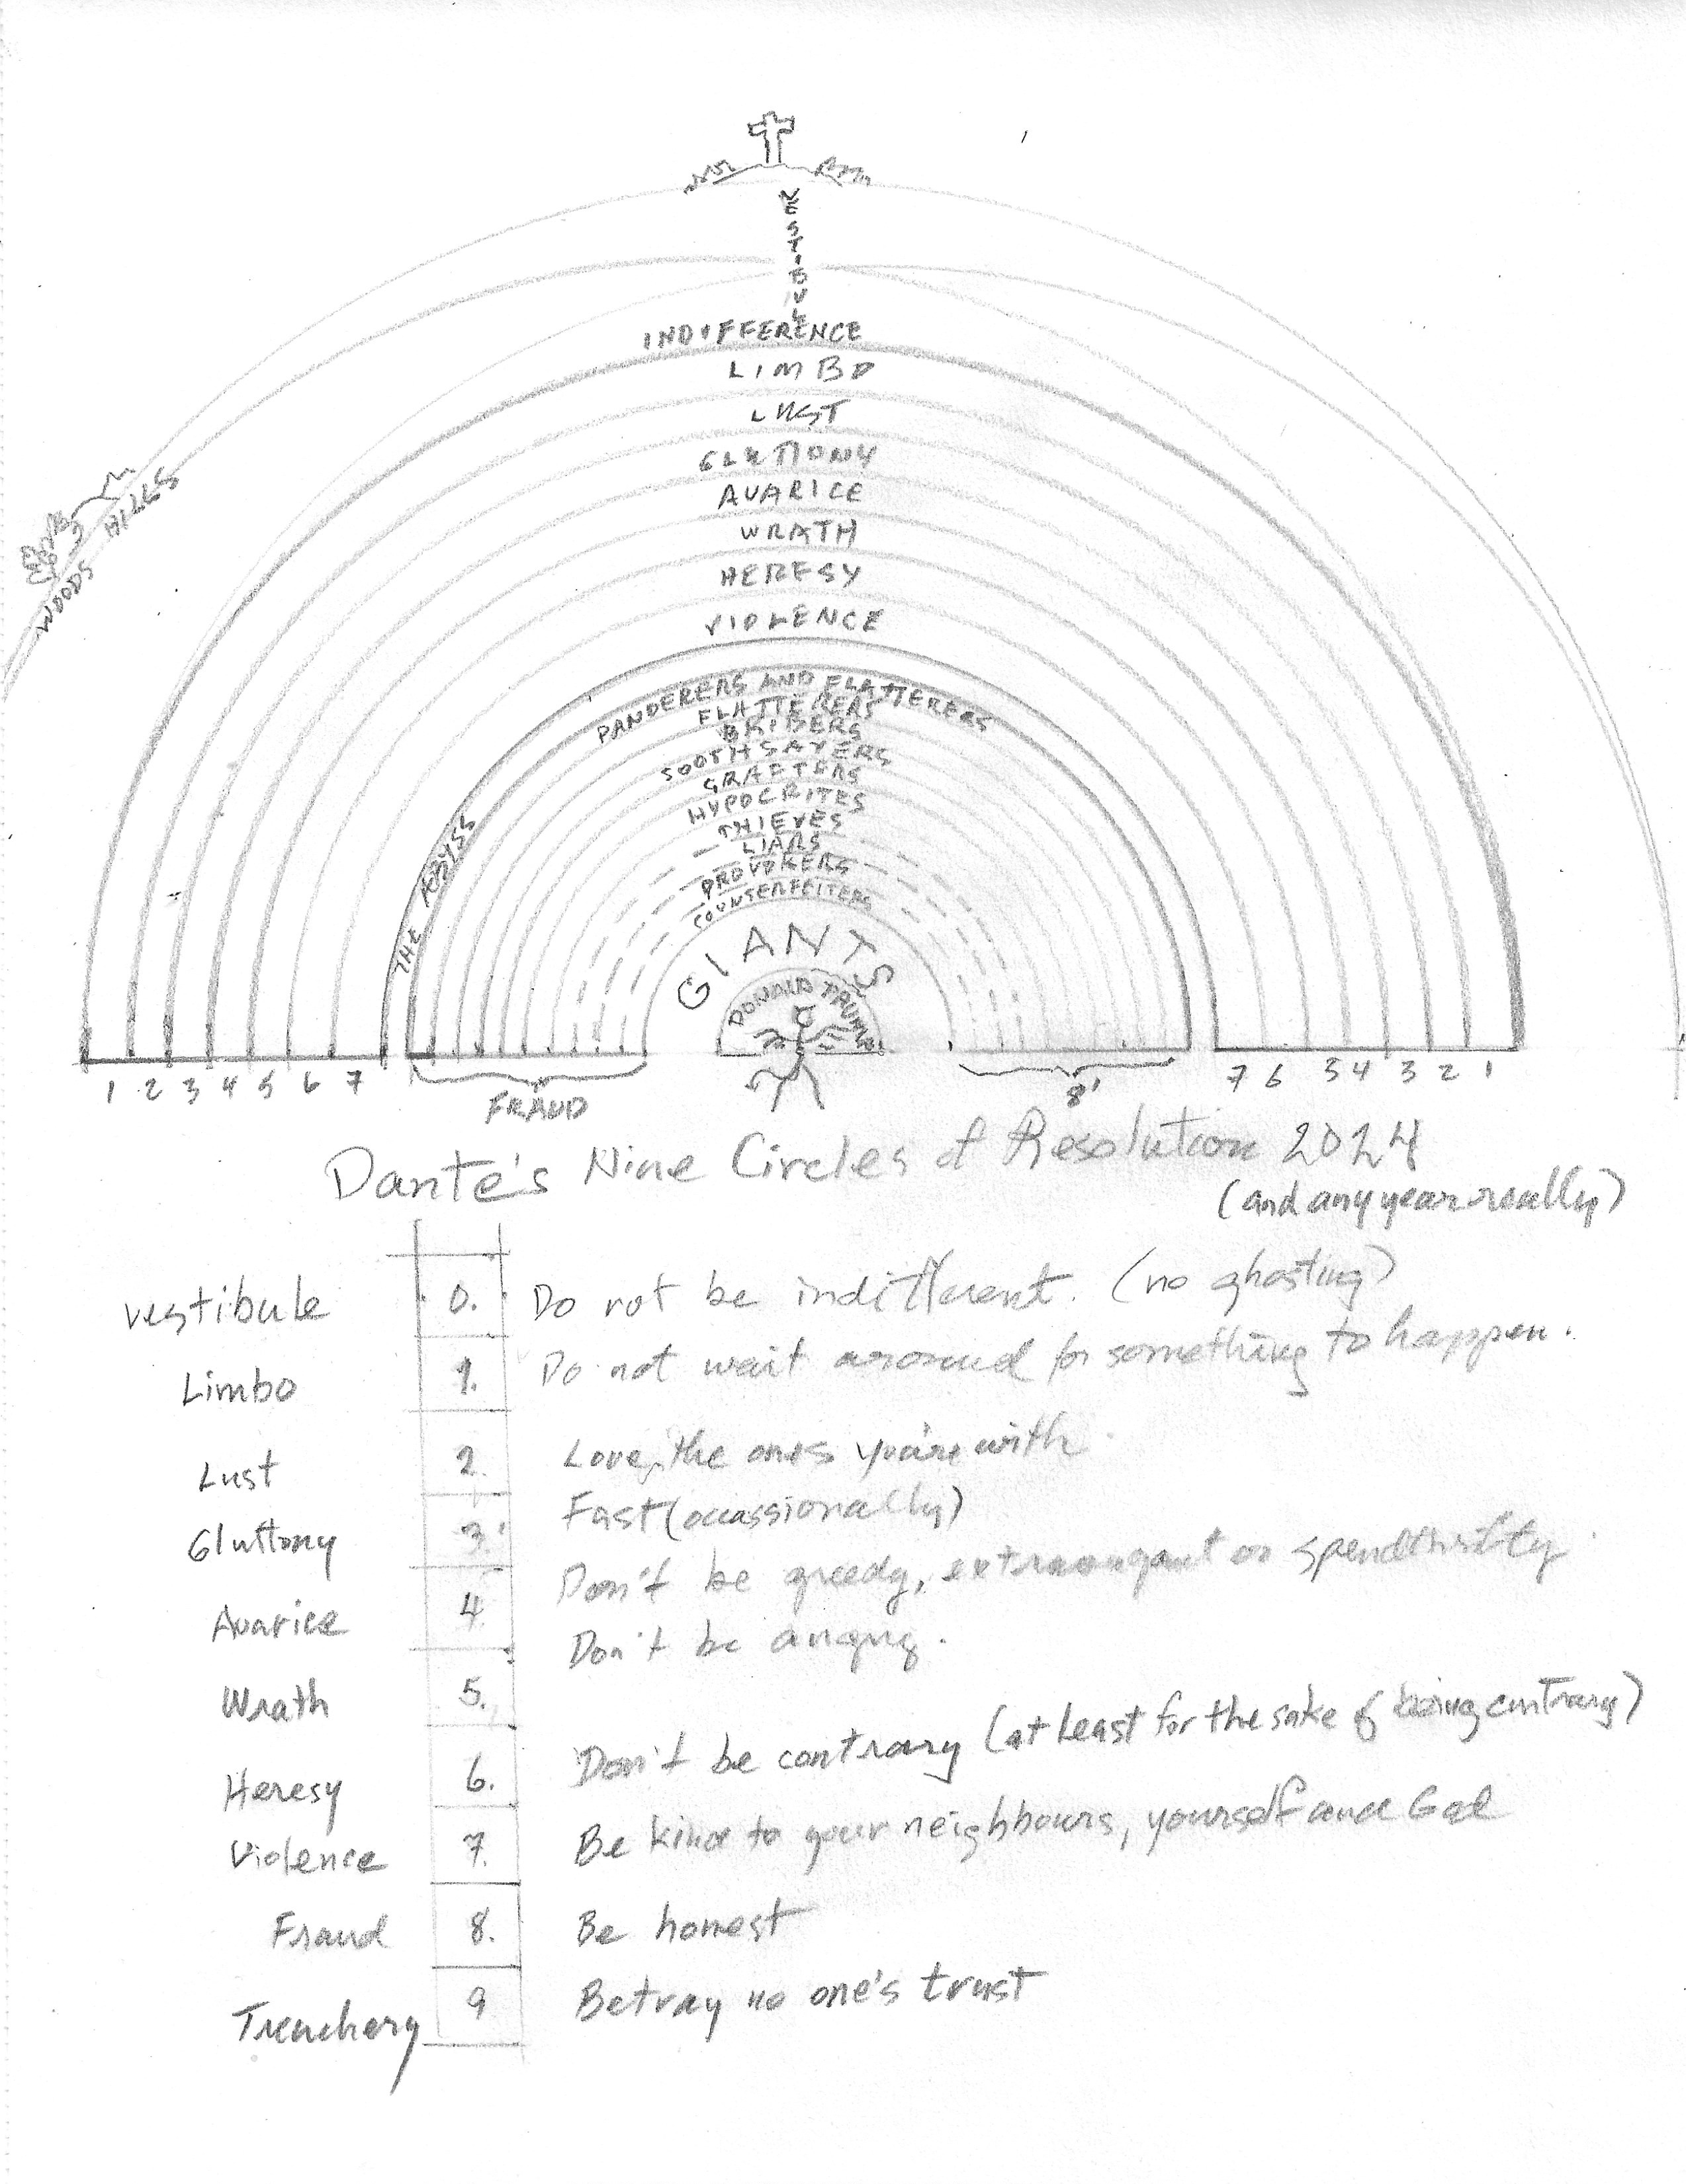 VESTIBULE
INDIFFERENCE
LIMBO
LUST
GLUTTONY
AVARICE
WRATH
HERESY
VIOLENCE
WOODS HILLS
THE ABYSS
PANDERERS AND FLATTERERS
FLATTERERS
BRIBERS
SOOTHSAYERS
GRAFTERS
HYPOCRITES
THIEVES
LIARS
PROVOKERS
COUNTERFEITERS
GIANTS
DONALD TRUMP
1 2 3 4 5 6 7
FRAUD
8'
7 6 5 4 3 2 1
Dante's Nine Circles of Resolution 2024
(and any year really)
vestibule 0. Do not be indifferent. (no ghosting)
Limbo 1. Do not wait around for something to happen.
Lust 2. Love the ones you're with.
Gluttony 3. Fast (occassionally)
Avarice 4. Don't be greedy, extravagant or spendthrifty.
Wrath 5. Don't be angry.
Heresy 6. Don't be contrary (at least for the sake of being contrary)
Violence 7. Be kind to your neighbours, yourself and God
Fraud 8. Be honest
Treachery 9 Betray no one's trust